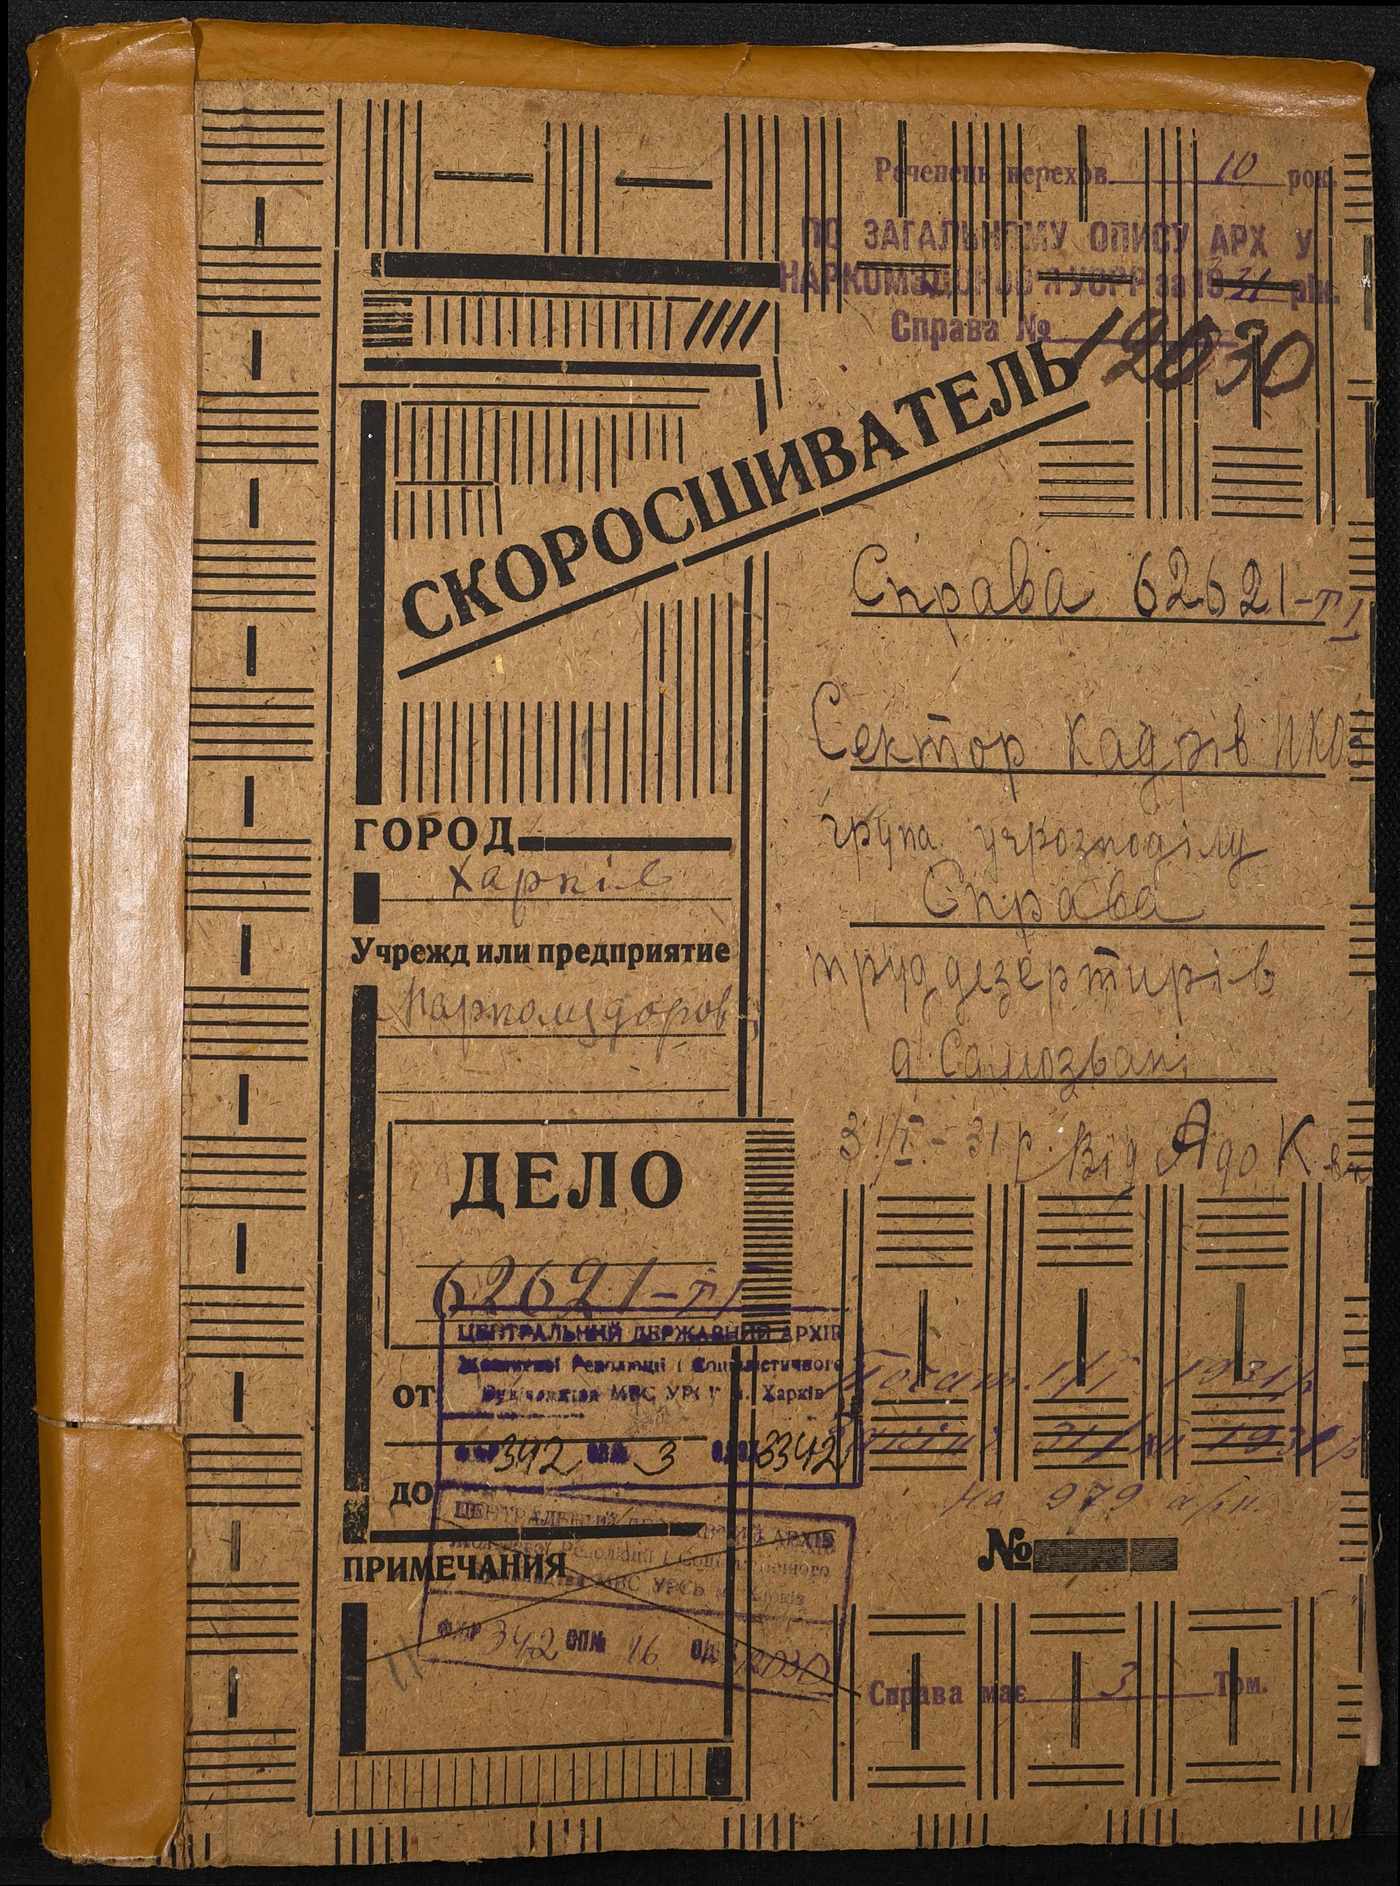 Реченець перехов. 10 рок.
ПО ЗАГАЛЬНОМУ ОПИСУ АРХ У
НАРКОМЗДОРОВ'Я УСРР за 1931 рік.
Справа № 12030
СКОРОСШИВАТЕЛЬ
Справа 62621-т I
Сектор кадрів НКОЗ
група учрозподілу
Справа
труддезертирів
а Самозвані
З 1/I - 31 р. Від А до К вк
ГОРОД
Харків
Учрежд или предприятие
Наркомздоров
ДЕЛО
62621-т I
ЦЕНТРАЛЬНИЙ ДЕРЖАВНИЙ АРХІВ
Жовтневої Революції і Соціалістичного
Будівництва МВС УРСР м. Харків
ОТ
ФР 342 ОП.№ 3 ОД.ЗБ 3342
ДО
ЦЕНТРАЛЬНИЙ ДЕРЖАВНИЙ АРХІВ
Жовтневої Революції і Соціалістичного
Будівництва МВС УРСР м. Харків
ПРИМЕЧАНИЯ
342 ОП.№ 16 12030
Почат. 1/I 1931 р
31/XII 1931 р
На 979 арк.
№
Справа має 3 Том.